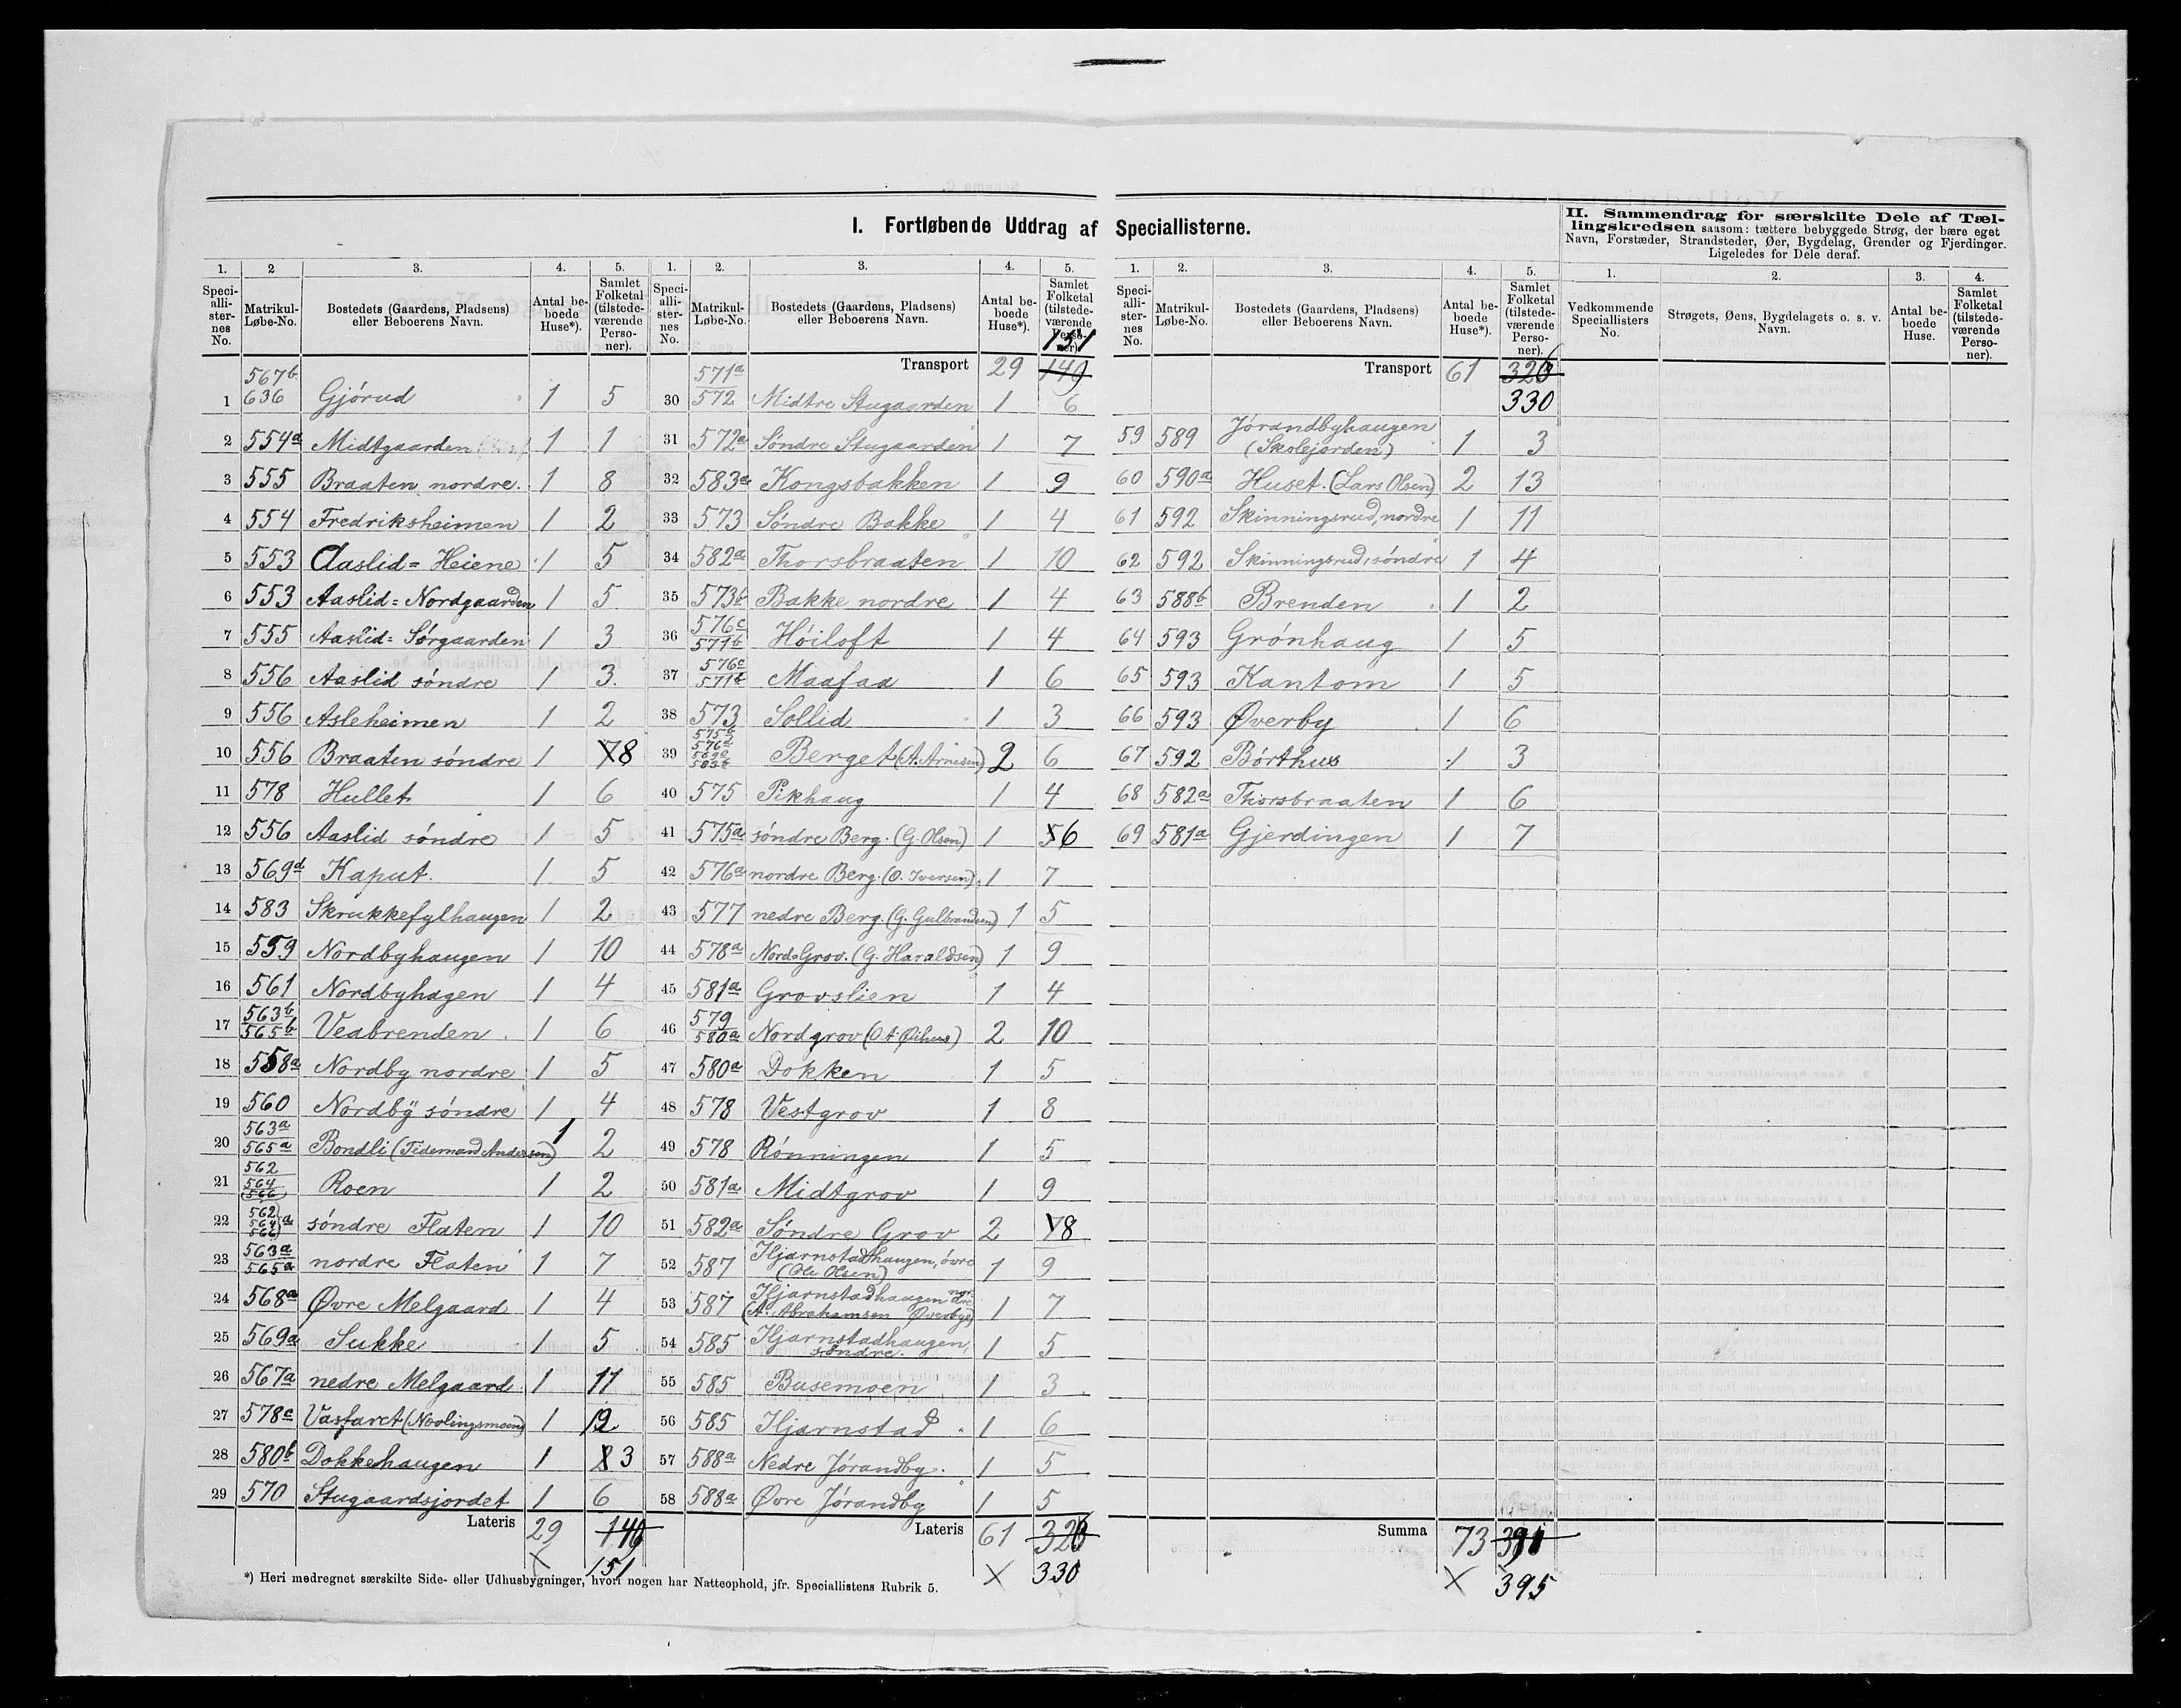 I. Fortløbende Uddrag af Speciallisterne.
II. Sammendrag for særskilte Dele af Tæl-
lingskredsen saasom: tættere bebyggede Strøg, der bære eget
Navn, Forstæder, Strandsteder, Øer, Bygdelag, Grender og Fjerdinger.
Ligeledes for Dele deraf.
1. 2 3. 4. 5.
Speci-alli-ster-nes No. Matrikul-Løbe-No. Bostedets (Gaardens, Pladsens) eller Beboerens Navn. Antal be-boede Huse*). Samlet Folketal (tilstede-værende Perso-ner).
1 567b 636 Gjørud 1 5
2 554a Midtgaarden 1 1
3 555 Braaten nordre. 1 8
4 554 Fredriksheimen 1 2
5 553 Aaslid=Heiene 1 5
6 553 Aaslid=Nordgaarden 1 5
7 555 Aaslid=Sørgaarden 1 3
8 556 Aaslid søndre 1 3
9 556 Asleheimen 1 2
10 556 Braaten søndre 1 8
11 578 Hullet 1 6
12 556 Aaslid søndre 1 5
13 569d Kaput. 1 5
14 583 Skrukkefylhaugen 1 2
15 559 Nordbyhaugen 1 10
16 561 Nordbyhagen 1 4
17 563b 565b Veabrenden 1 6
18 558a Nordby nordre 1 5
19 560 Nordby søndre 1 4
20 563a 565a Bondli (Tidemand Andersen) 1 2
21 562 564 566 Roen 1 2
22 562 564 566 a søndre Flaten 1 10
23 563a 565a nordre Flaten 1 7
24 568a Øvre Melgaard 1 4
25 569a Sukke 1 5
26 567a nedre Melgaard 1 11
27 578c Vasfaret 1
28 580b Dokkehaugen 1 3
29 570 Stugaardsjordet 1 6
Lateris 29 149
151
1. 2. 3. 4. 5.
Speci-alli-ster-nes No. Matrikul-Løbe-No. Bostedets (Gaardens, Pladsens) eller Beboerens Navn. Antal be-boede Huse*). Samlet Folketal (tilstede-værende Perso-ner).
151
Transport 29 149
30 571a 572 Midtre Stugaarden 1 6
31 572a Søndre Stugaarden 1 7
32 583a Kongsbakken 1 9
33 573 Søndre Bakke 1 4
34 582a Thorsbraaten 1 10
35 573b Bakke nordre 1 4
36 576c 571b Høiloft 1 4
37 576c 571b Maafaa 1 6
38 573 Sollid 1 3
39 Berget (A. Arnesen) 2 6
40 575 Pikhaug 1 4
41 575a søndre Berg. (G. Olsen) 1 6
42 576a nordre Berg. (O. Iversen) 1 7
43 577 nedre Berg. (G. Gulbrandsen) 1 5
44 578a Nord=Grov. (G. Haraldsen) 1 9
45 581a Grovslien 1 4
46 579 580a Nordgrov 2 10
47 580a Dokken 1 5
48 578 Vestgrov 1 8
49 578 Rønningen 1 5
50 581a Midtgrov 1 9
51 582a Søndre Grov 2 8
52 587 Hjarnstadhaugen, øvre (Ole Olsen) 1 9
53 587 Hjarnstadhaugen nordre (A. Abrahamsen Øverbye) 1 7
54 585 Hjarnstadhaugen, søndre. 1 5
55 585 Busemoen 1 3
56 585 Hjarnstad 1 6
57 588a Nedre Jørandby. 1 5
58 588a Øvre Jørandby 1 5
Lateris 61 326
330
1. 2. 3. 4. 5.
Speci-alli-ster-nes No. Matrikul-Løbe-No. Bostedets (Gaardens, Pladsens) eller Beboerens Navn. Antal be-boede Huse*). Samlet Folketal (tilstede-værende Perso-ner).
Transport 61 326
330
59 589 Jørandbyhaugen (Skolejorden) 1 3
60 590a Huset. (Lars Olsen) 2 13
61 592 Skinningsrud, nordre 1 11
62 592 Skinningsrud, søndre 1 4
63 588b Brenden 1 2
64 593 Grønhaug 1 5
65 593 Kantom 1 5
66 593 Øverby 1 6
67 592 Børthus 1 3
68 582a Thorsbraaten 1 6
69 581a Gjerdingen 1 7
Summa 73 391
395
1. 2. 3. 4.
Vedkommende Speciallisters No. Strøgets, Øens, Bygdelagets o. s. v. Navn. Antal be-boede Huse. Samlet Folketal (tilstede-værende Perso-ner).
*) Heri medregnet særskilte Side- eller Udhusbygninger, hvori nogen har Natteophold, jfr. Speciallistens Rubrik 5.